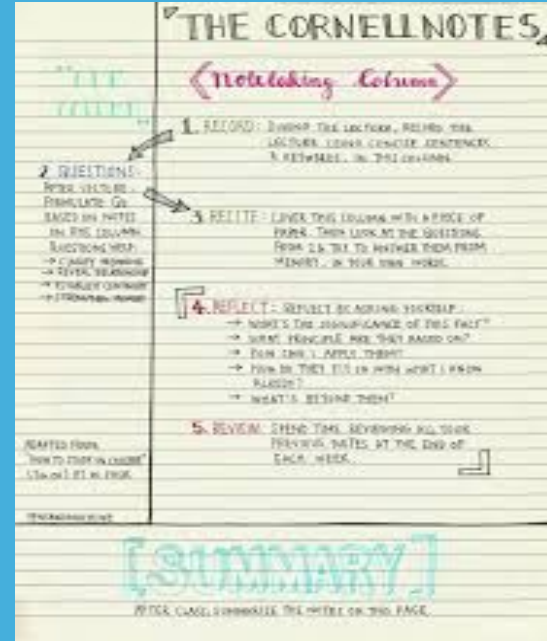 THE CORNELL NOTES
Notetaking Column
1. RECORD: DURING THE LECTURE, RECORD THE
LECTURE USING CONCISE SENTENCES
& KEYWORDS, IN THIS COLUMN
2. QUESTIONS:
AFTER LECTURE,
FORMULATE Qs
BASED ON NOTES
IN THIS COLUMN.
QUESTIONS HELP:
→ CLARIFY MEANING
→ REVEAL RELATIONSHIP
→ ESTABLISH CONTINUITY
→ STRENGTHEN MEMORY
3. RECITE: COVER THIS COLUMN WITH A PIECE OF
PAPER. THEN LOOK AT THE QUESTIONS
FROM 2 & TRY TO ANSWER THEM FROM
MEMORY, IN YOUR OWN WORDS.
4. REFLECT: REFLECT BY ASKING YOURSELF:
→ WHAT'S THE SIGNIFICANCE OF THIS FACT?
→ WHAT PRINCIPLE ARE THEY BASED ON?
→ HOW CAN I APPLY THEM?
→ HOW DO THEY FIT IN WITH WHAT I KNOW
ALREADY?
→ WHAT'S BEYOND THEM?
5. REVIEW: SPEND TIME REVIEWING ALL YOUR
PREVIOUS NOTES AT THE END OF
EACH WEEK.
ADAPTED FROM
"HOW TO STUDY IN COLLEGE"
[SUMMARY]
AFTER CLASS, SUMMARISE THE NOTES ON THIS PAGE